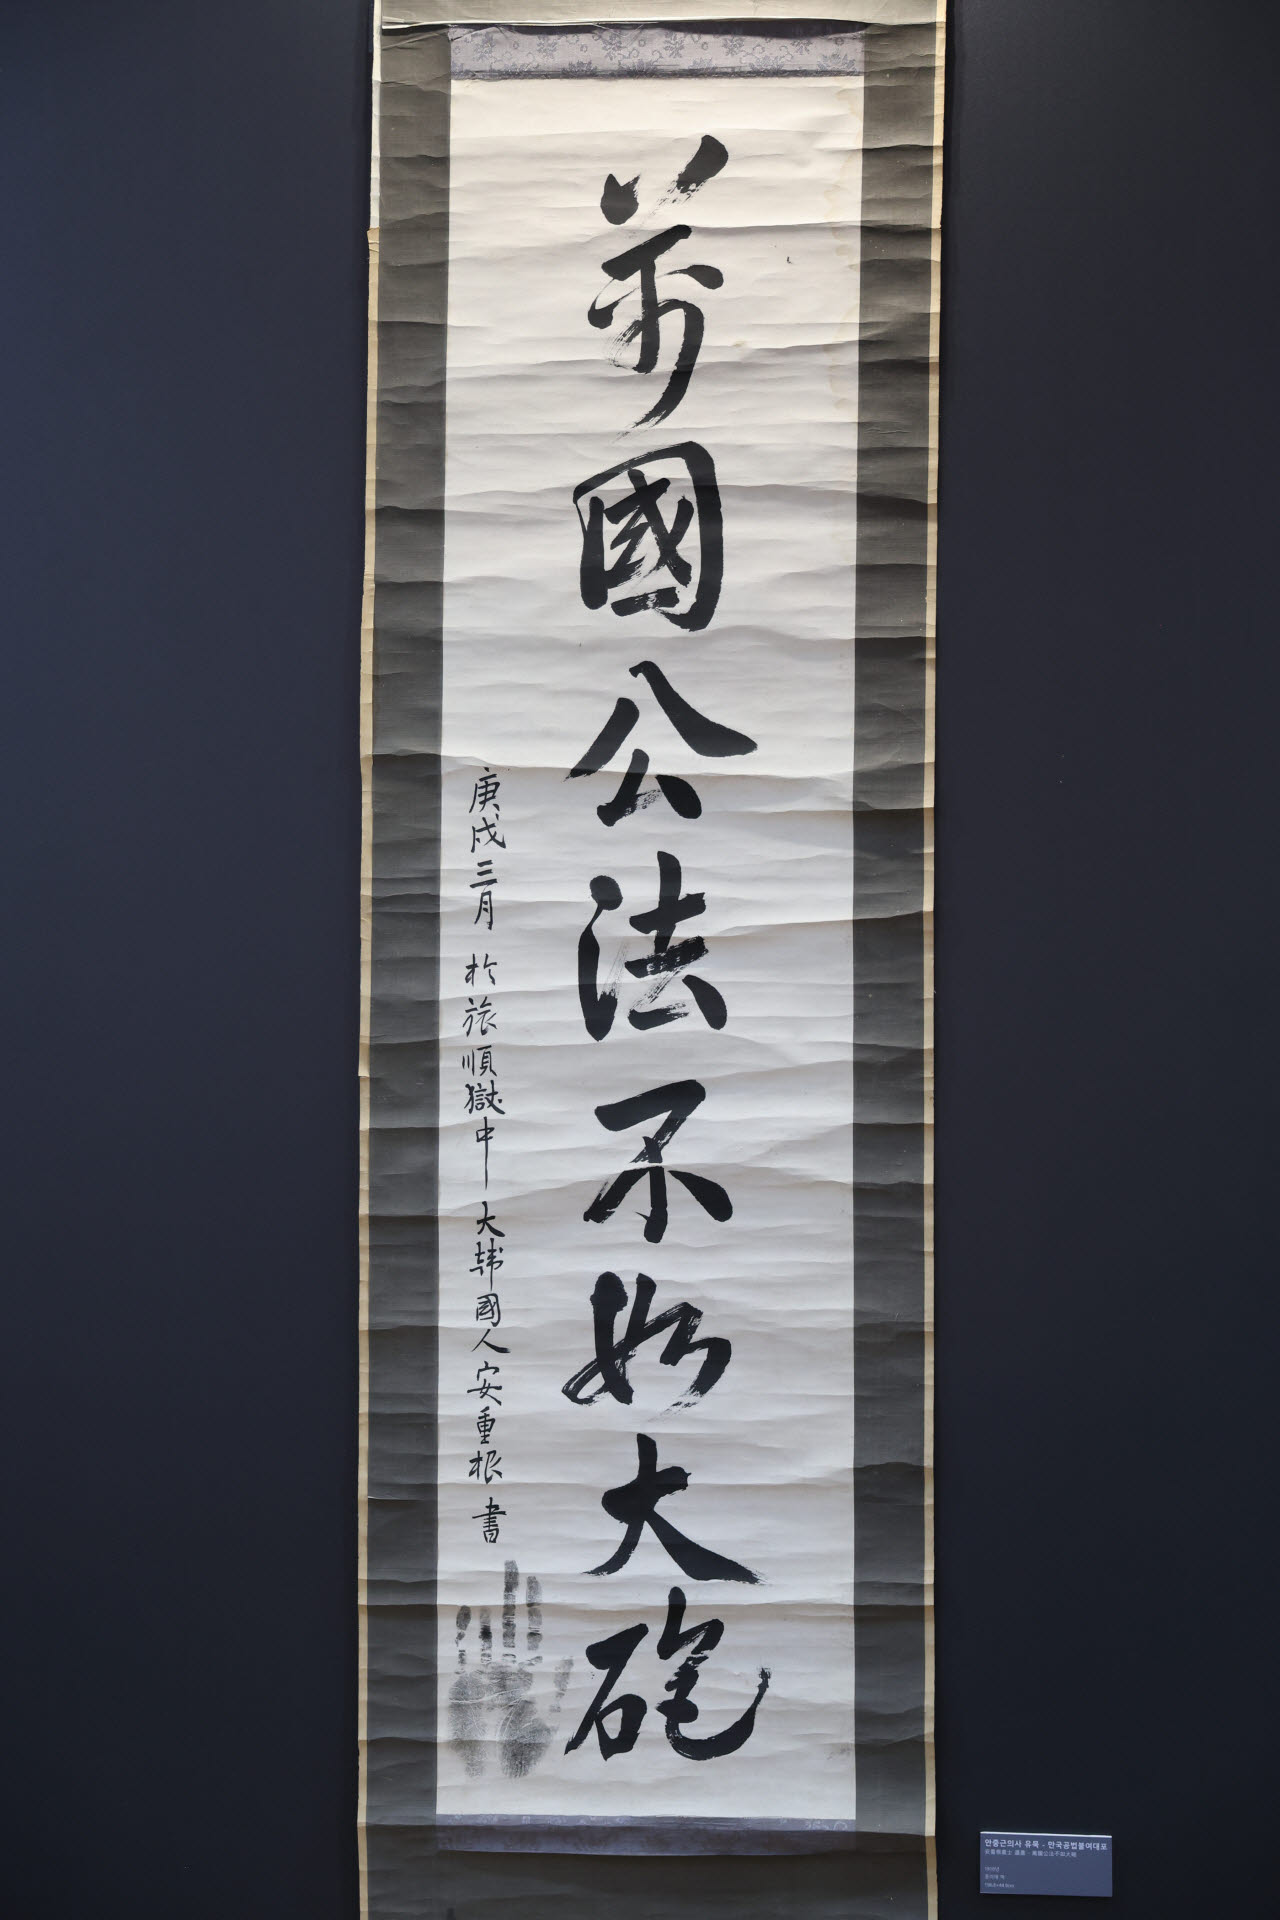 萬國公法不如大砲
庚戌三月 於旅順獄中 大韓國人 安重根 書
안중근의사 유묵 - 만국공법불여대포
安重根義士 遺墨 - 萬國公法不如大砲